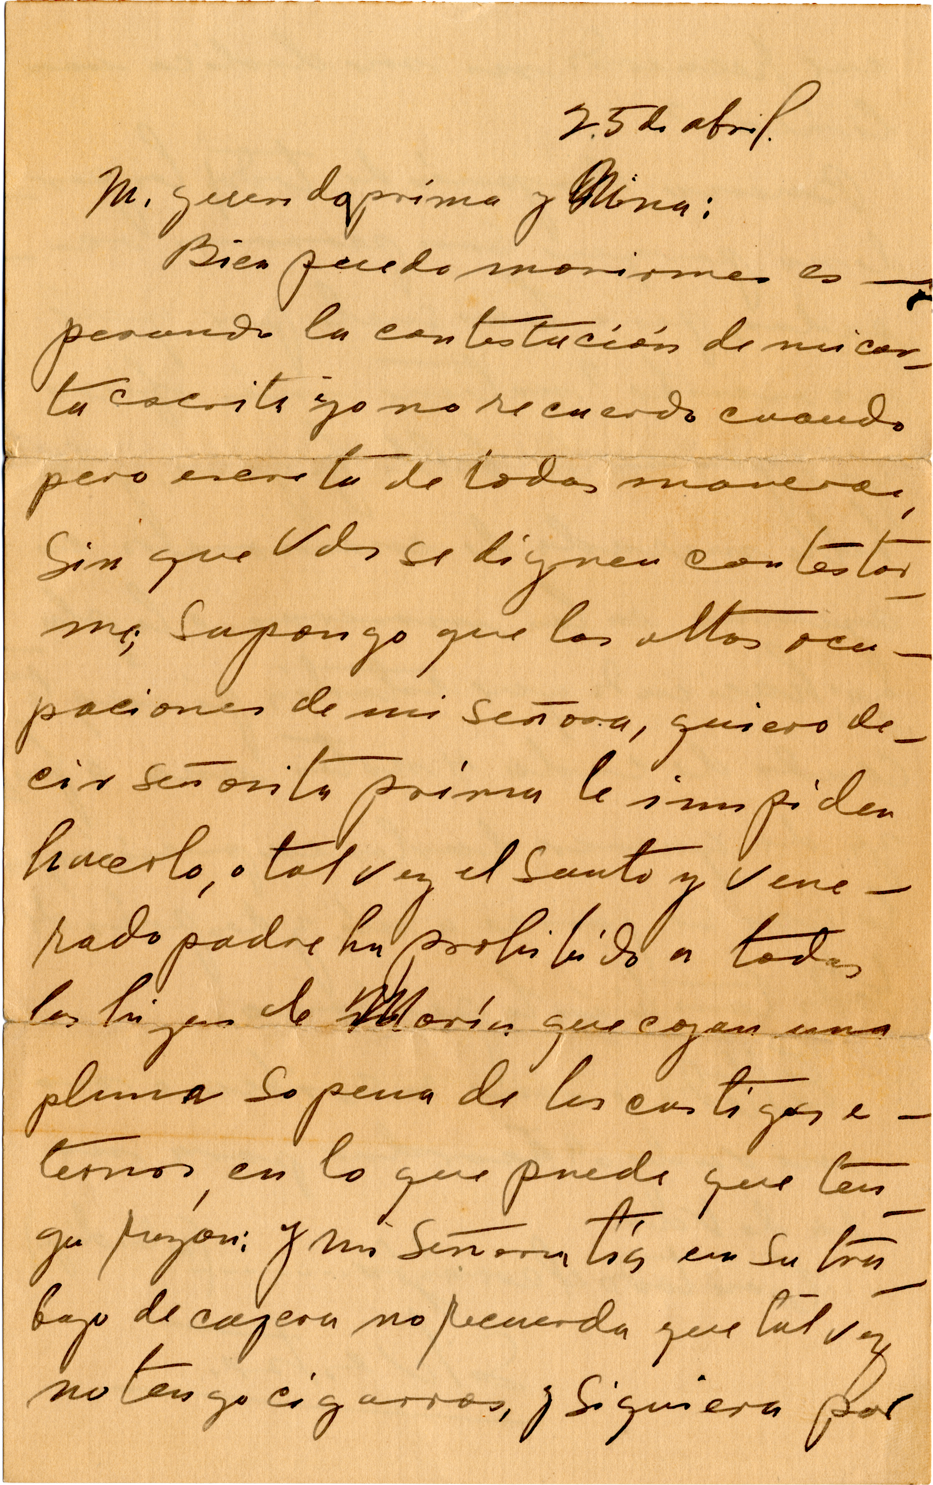 25 de abril.
M. querida prima y Nina:
Bien puedo morirme es-
perando la contestación de mi car-
ta escrita yo no recuerdo cuando
pero escrita de todas maneras,
sin que Vds se dignen contestar-
me; supongo que las altas ocu-
paciones de mi señora, quiero de-
cir señorita prima le impiden
hacerlo, o tal vez el santo y vene-
rado padre ha prohibido a todas
las hijas de María que cojan una
pluma so pena de los castigos e-
ternos, en lo que puede que ten-
ga razon: y mi señora tía en su tra-
bajo de cajera no recuerda que tal vez
no tengo cigarros, y siquiera por